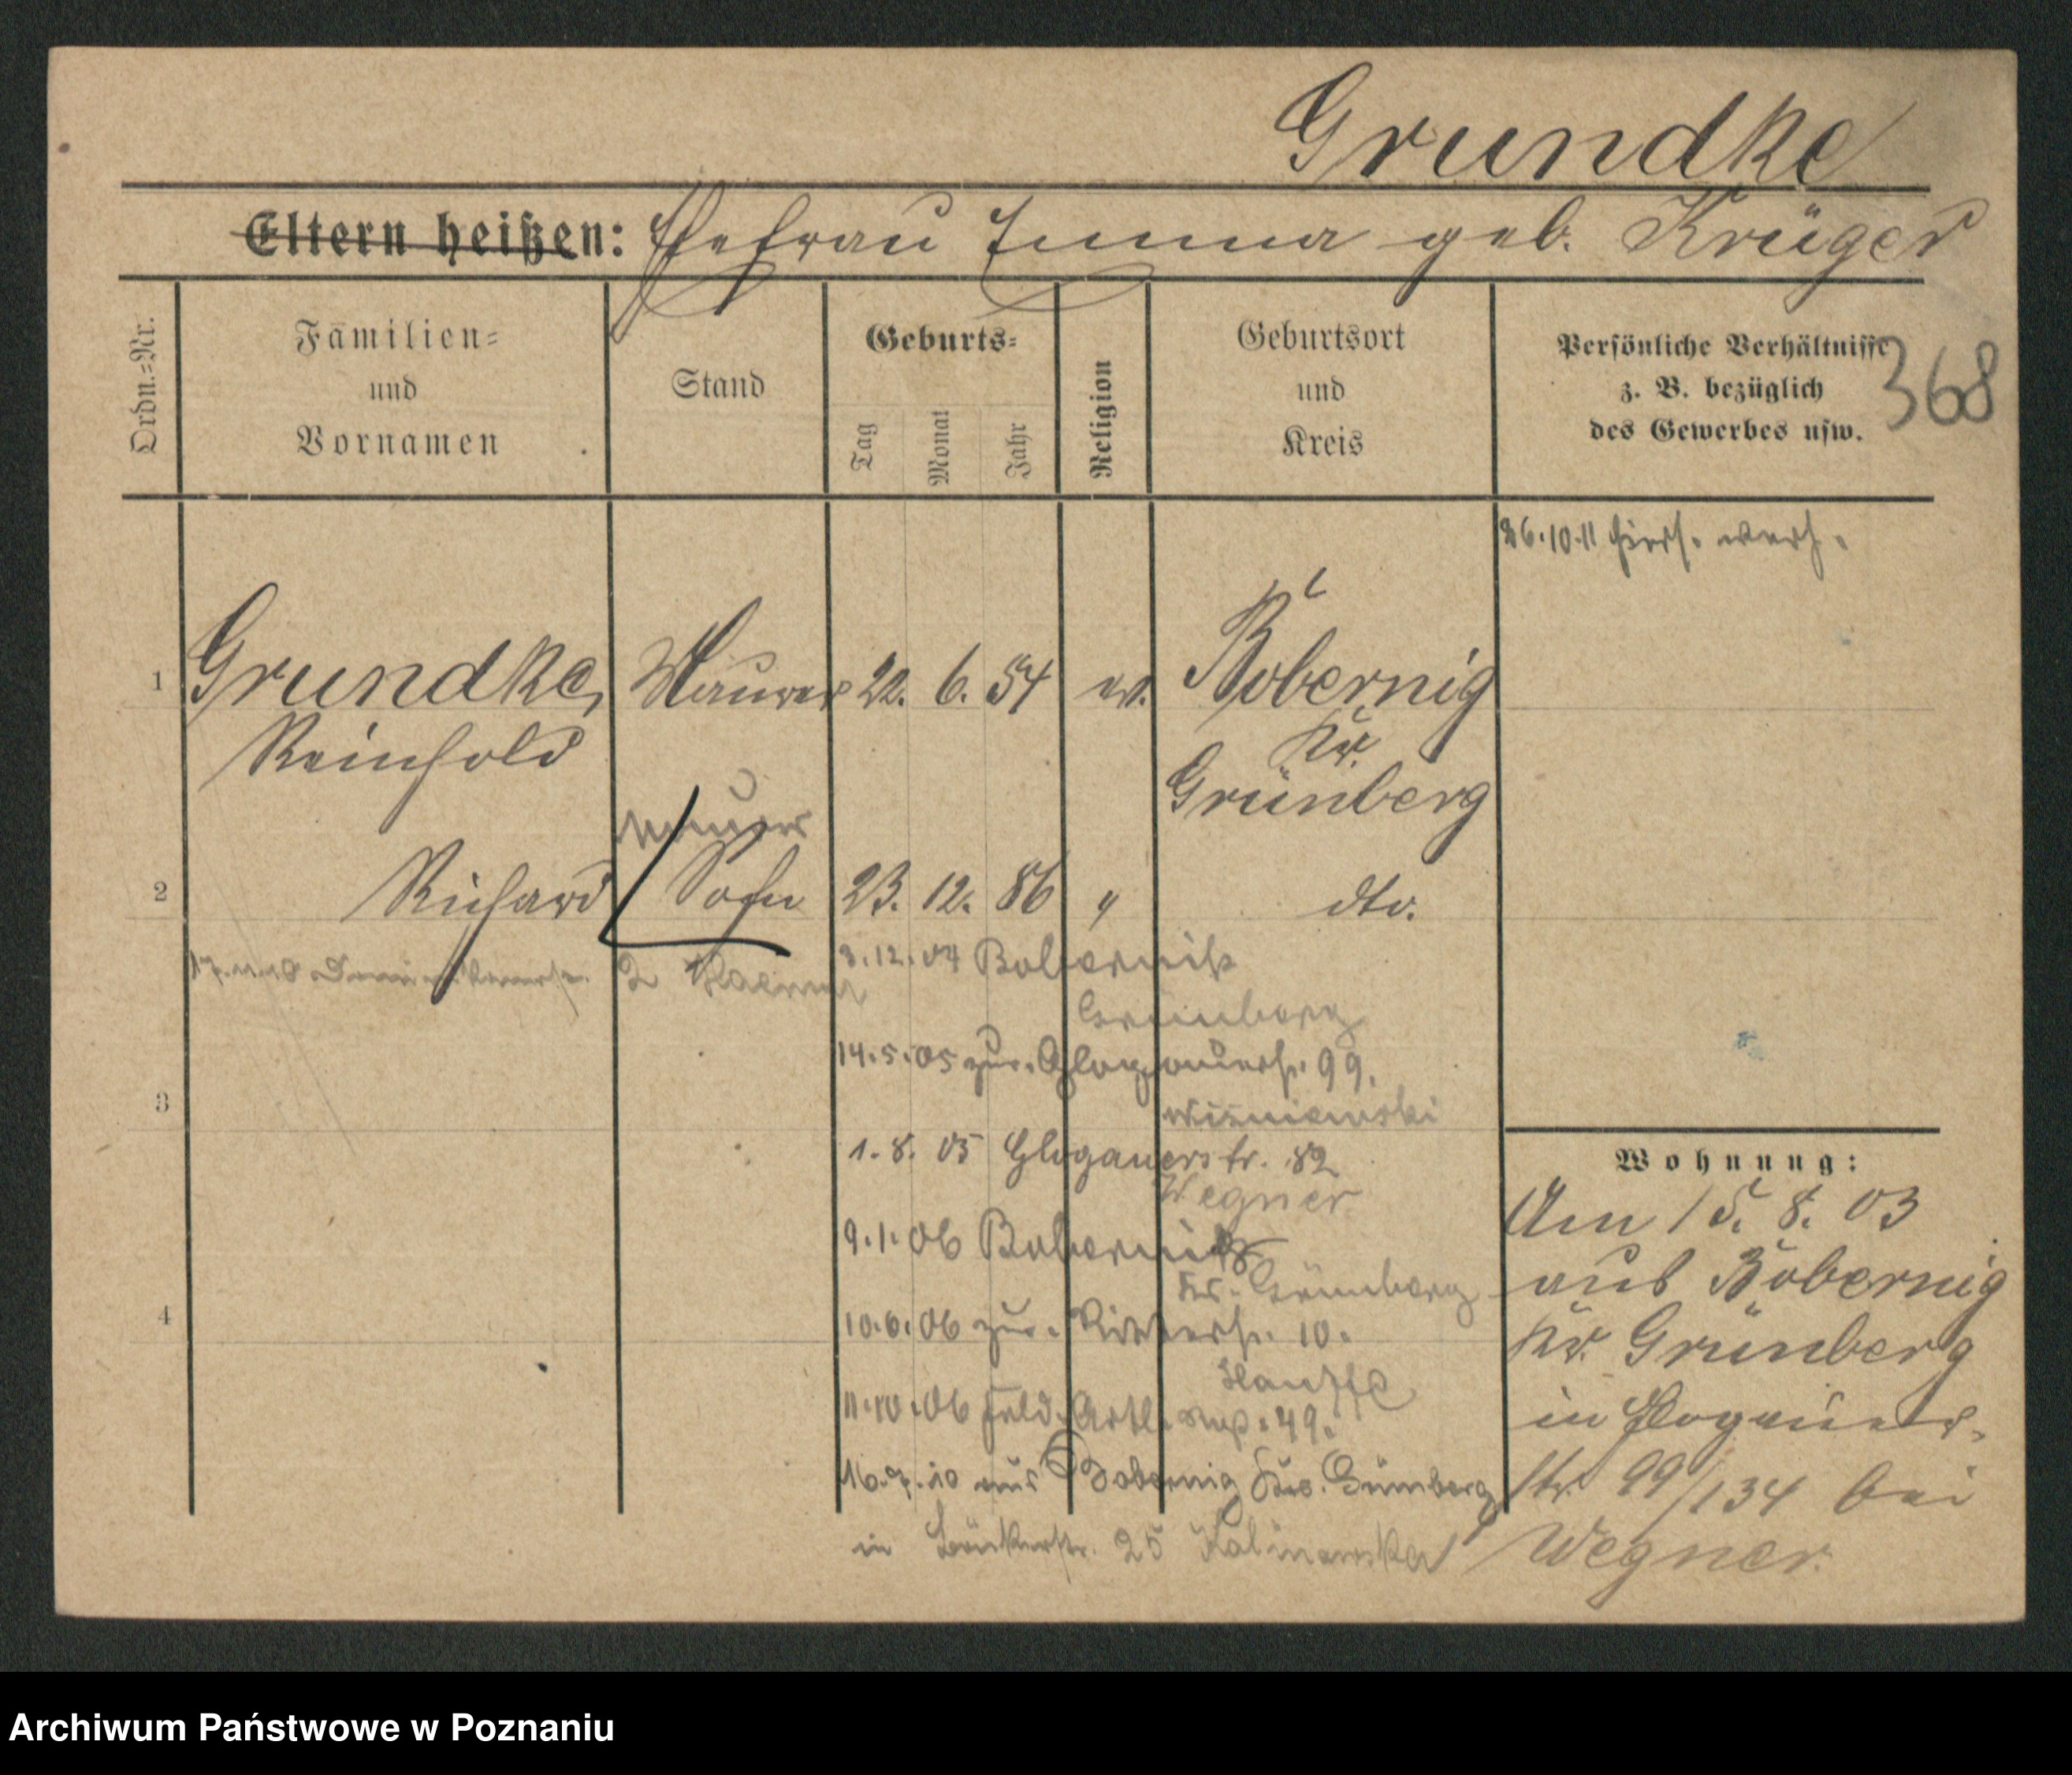 Grundke
Eltern heißen: Ehefrau Emma geb. Krüger
368
Ordn.-Nr.
Familien- und Vornamen
Stand
Geburts-
Tag
Monat
Jahr
Religion
Geburtsort und Kreis
Persönliche Verhältnisse
z. B. bezüglich
des Gewerbes usw.
26.10.11
1 Grundke, Maurer 22. 6. 54 ev. Bobernig
Reinhold Kr.
Grünberg
Maurer
2 Richard Sohn 23. 12. 86 " dto.
3.12.04 Bobernik
Grünberg
14.5.05 zur. Glogauerstr. 99.
Wiśniewski
3
1.8.05 Glogauerstr. 82
Wegner
9.1.06 Bobernik
Krs. Grünberg
4
10.6.06 zur. Ritterstr. 10.
Hauffe
11.10.06 Feld. Artl. Rgt. 49.
16.7.10 aus Bobernig Krs. Grünberg
in 25
Wohnung:
Am 15. 8. 03
aus Bobernig
Kr. Grünberg
in Glogauer-
str. 99/134 bei
Wegner.
Archiwum Państwowe w Poznaniu